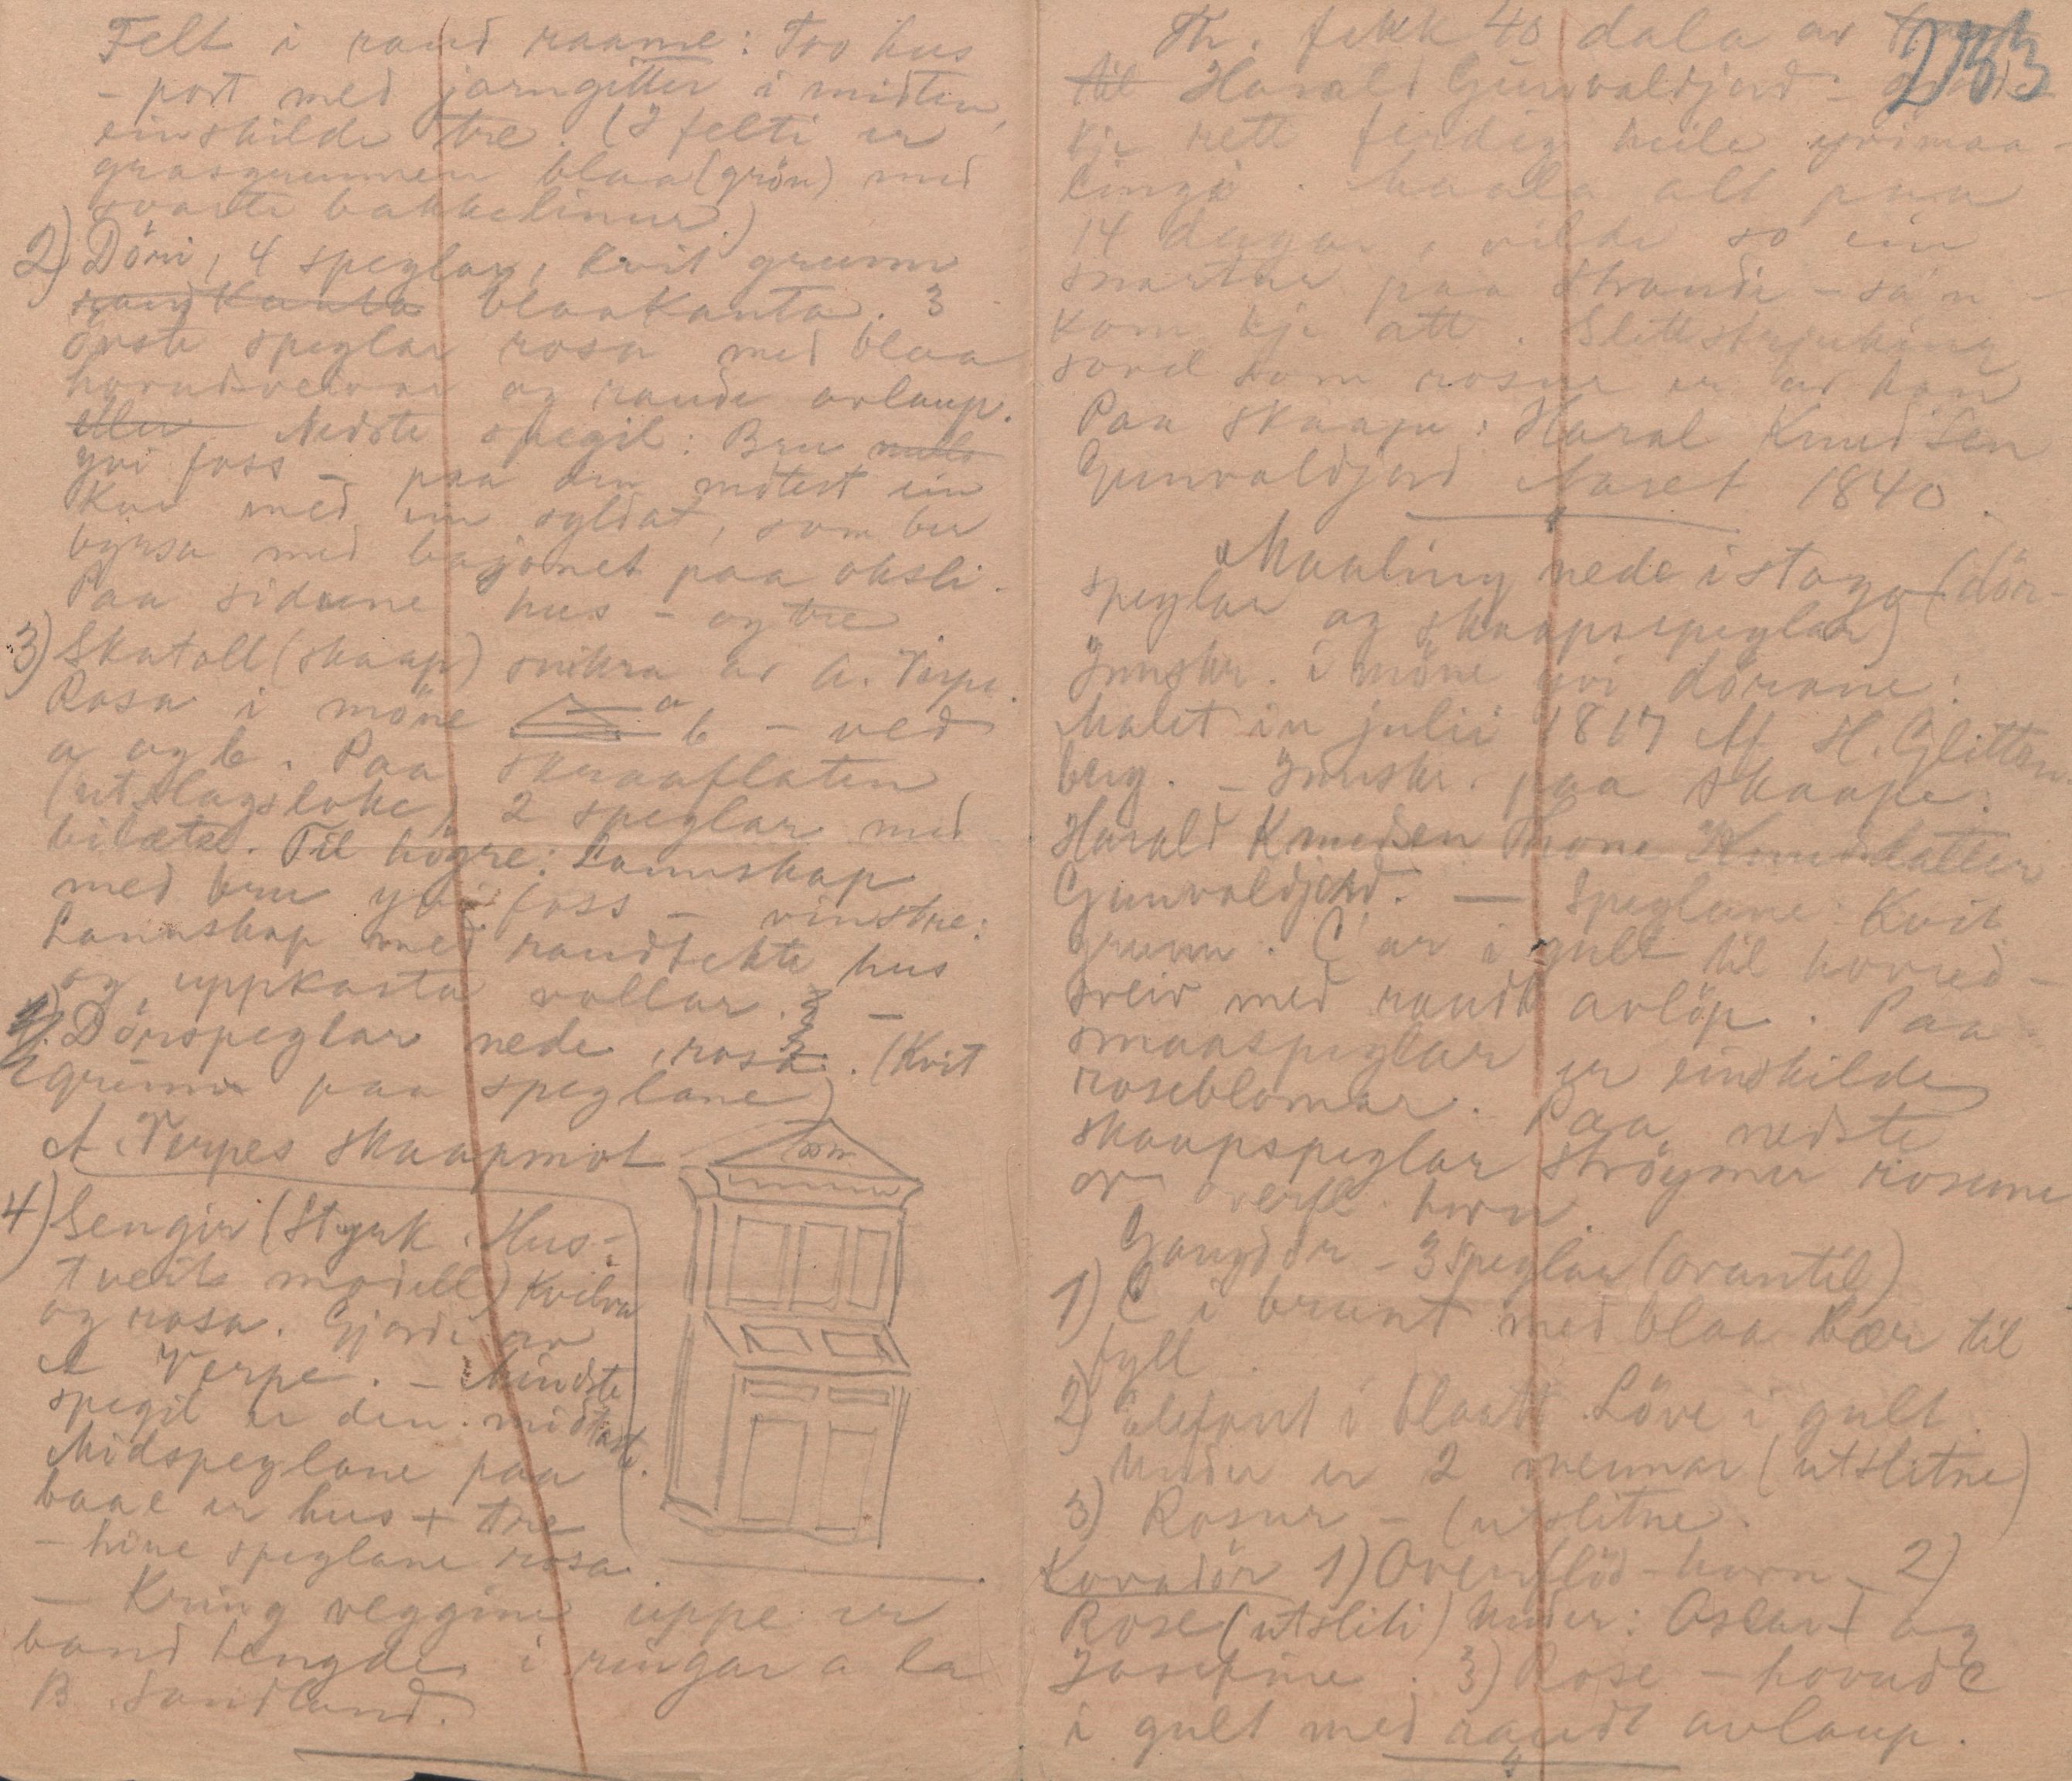 Felt i raud raame: Too hus
- port med jarngitter i midten,
einskilde tre. (I felti er
grasgrunnen blaa (grön) med
svarte bakkelinur.)
2) Döri, 4 speglar, kvit grunn
raudkanta blaakanta. 3
övste speglar rosa med blaa
hovudsveivar og raude avlaup.
eller Nedste spegil: Bru
yvi foss - paa den midtest ein
kar med ein syldat, som ber
byrsa med bajonet paa oksli.
Paa sidune hus - og tre
3) Skatoll (skaap) snikra av A. Verpe.
Rosa i möne a b - ved
a og b. Paa skraaflaten
(utslagsloke) 2 speglar med
bilæte. Til högre: Lannskap
med bru yvi foss - vinstre:
Lannskap med raudtekte hus
og uppkasta vollar. -
Dörspeglar nede, rosa. (Kvit
grunn paa speglane)
A. Verpes skaapmot
4) Sengir (Styrk. Hus-
tveits modell) Kvelva
og rosa. Gjord av
A Verpe. - Mindste
spegil er den midtast.
Midspeglane paa
baae er hus + tre
- hine speglane rosa.
- Kring veggine uppe er
band lengde i ringar a la
B. Sandland.
Th. fekk 40 dala av
til Harald Gunvaldjord -
kje rett ferdig heile yvimaa-
lingi. Maala alt paa
14 dagar, vilde so ein
snartur paa Strandi - sa'n
kom kje att. Slettstrjuking
sovel som rosur er av han
Paa skaape: Haral Knudsen
Gunvaldjord Aaret 1840.
Maaling nede i stogo (dör-
speglar og skaapspeglar)
Innskr. i möne yvi dörane:
Malet in julii 1817 Af H. Glitten
berg. - Innskr. paa skaape:
Harald Knudsen Thone Knudsdatter
Gunvaldjord. - Speglane: Kvit
grunn. C'ar i gult til hovud-
sveiv med raudt avlöp. Paa
smaaspeglar er einskilde
roseblomar. Paa nedste
skaapspeglar ströymer rosune
or overfl. horn.
Gangdör - 3 speglar (ovantil)
1) C i brunt med blaa bær til
fyll.
2) Elefant i blaatt. Löve i gult.
Under er 2 mennar (utslitne)
3) Rosur - (utslitne.
Kovadör 1) Overflöd-horn - 2)
Rose (utsliti) Under: Oscar I og
Josefine. 3) Rose - hovud C
i gult med raudt avlaup.
233